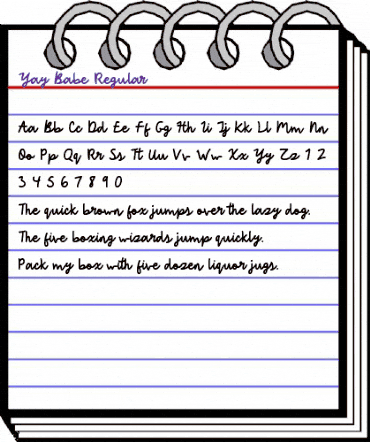 Yay Babe Regular
Aa Bb Cc Dd Ee Ff Gg Hh Ii Jj Kk Ll Mm Nn
Oo Pp Qq Rr Ss Tt Uu Vv Ww Xx Yy Zz 1 2
3 4 5 6 7 8 9 0
The quick brown fox jumps over the lazy dog.
The five boxing wizards jump quickly.
Pack my box with five dozen liquor jugs.